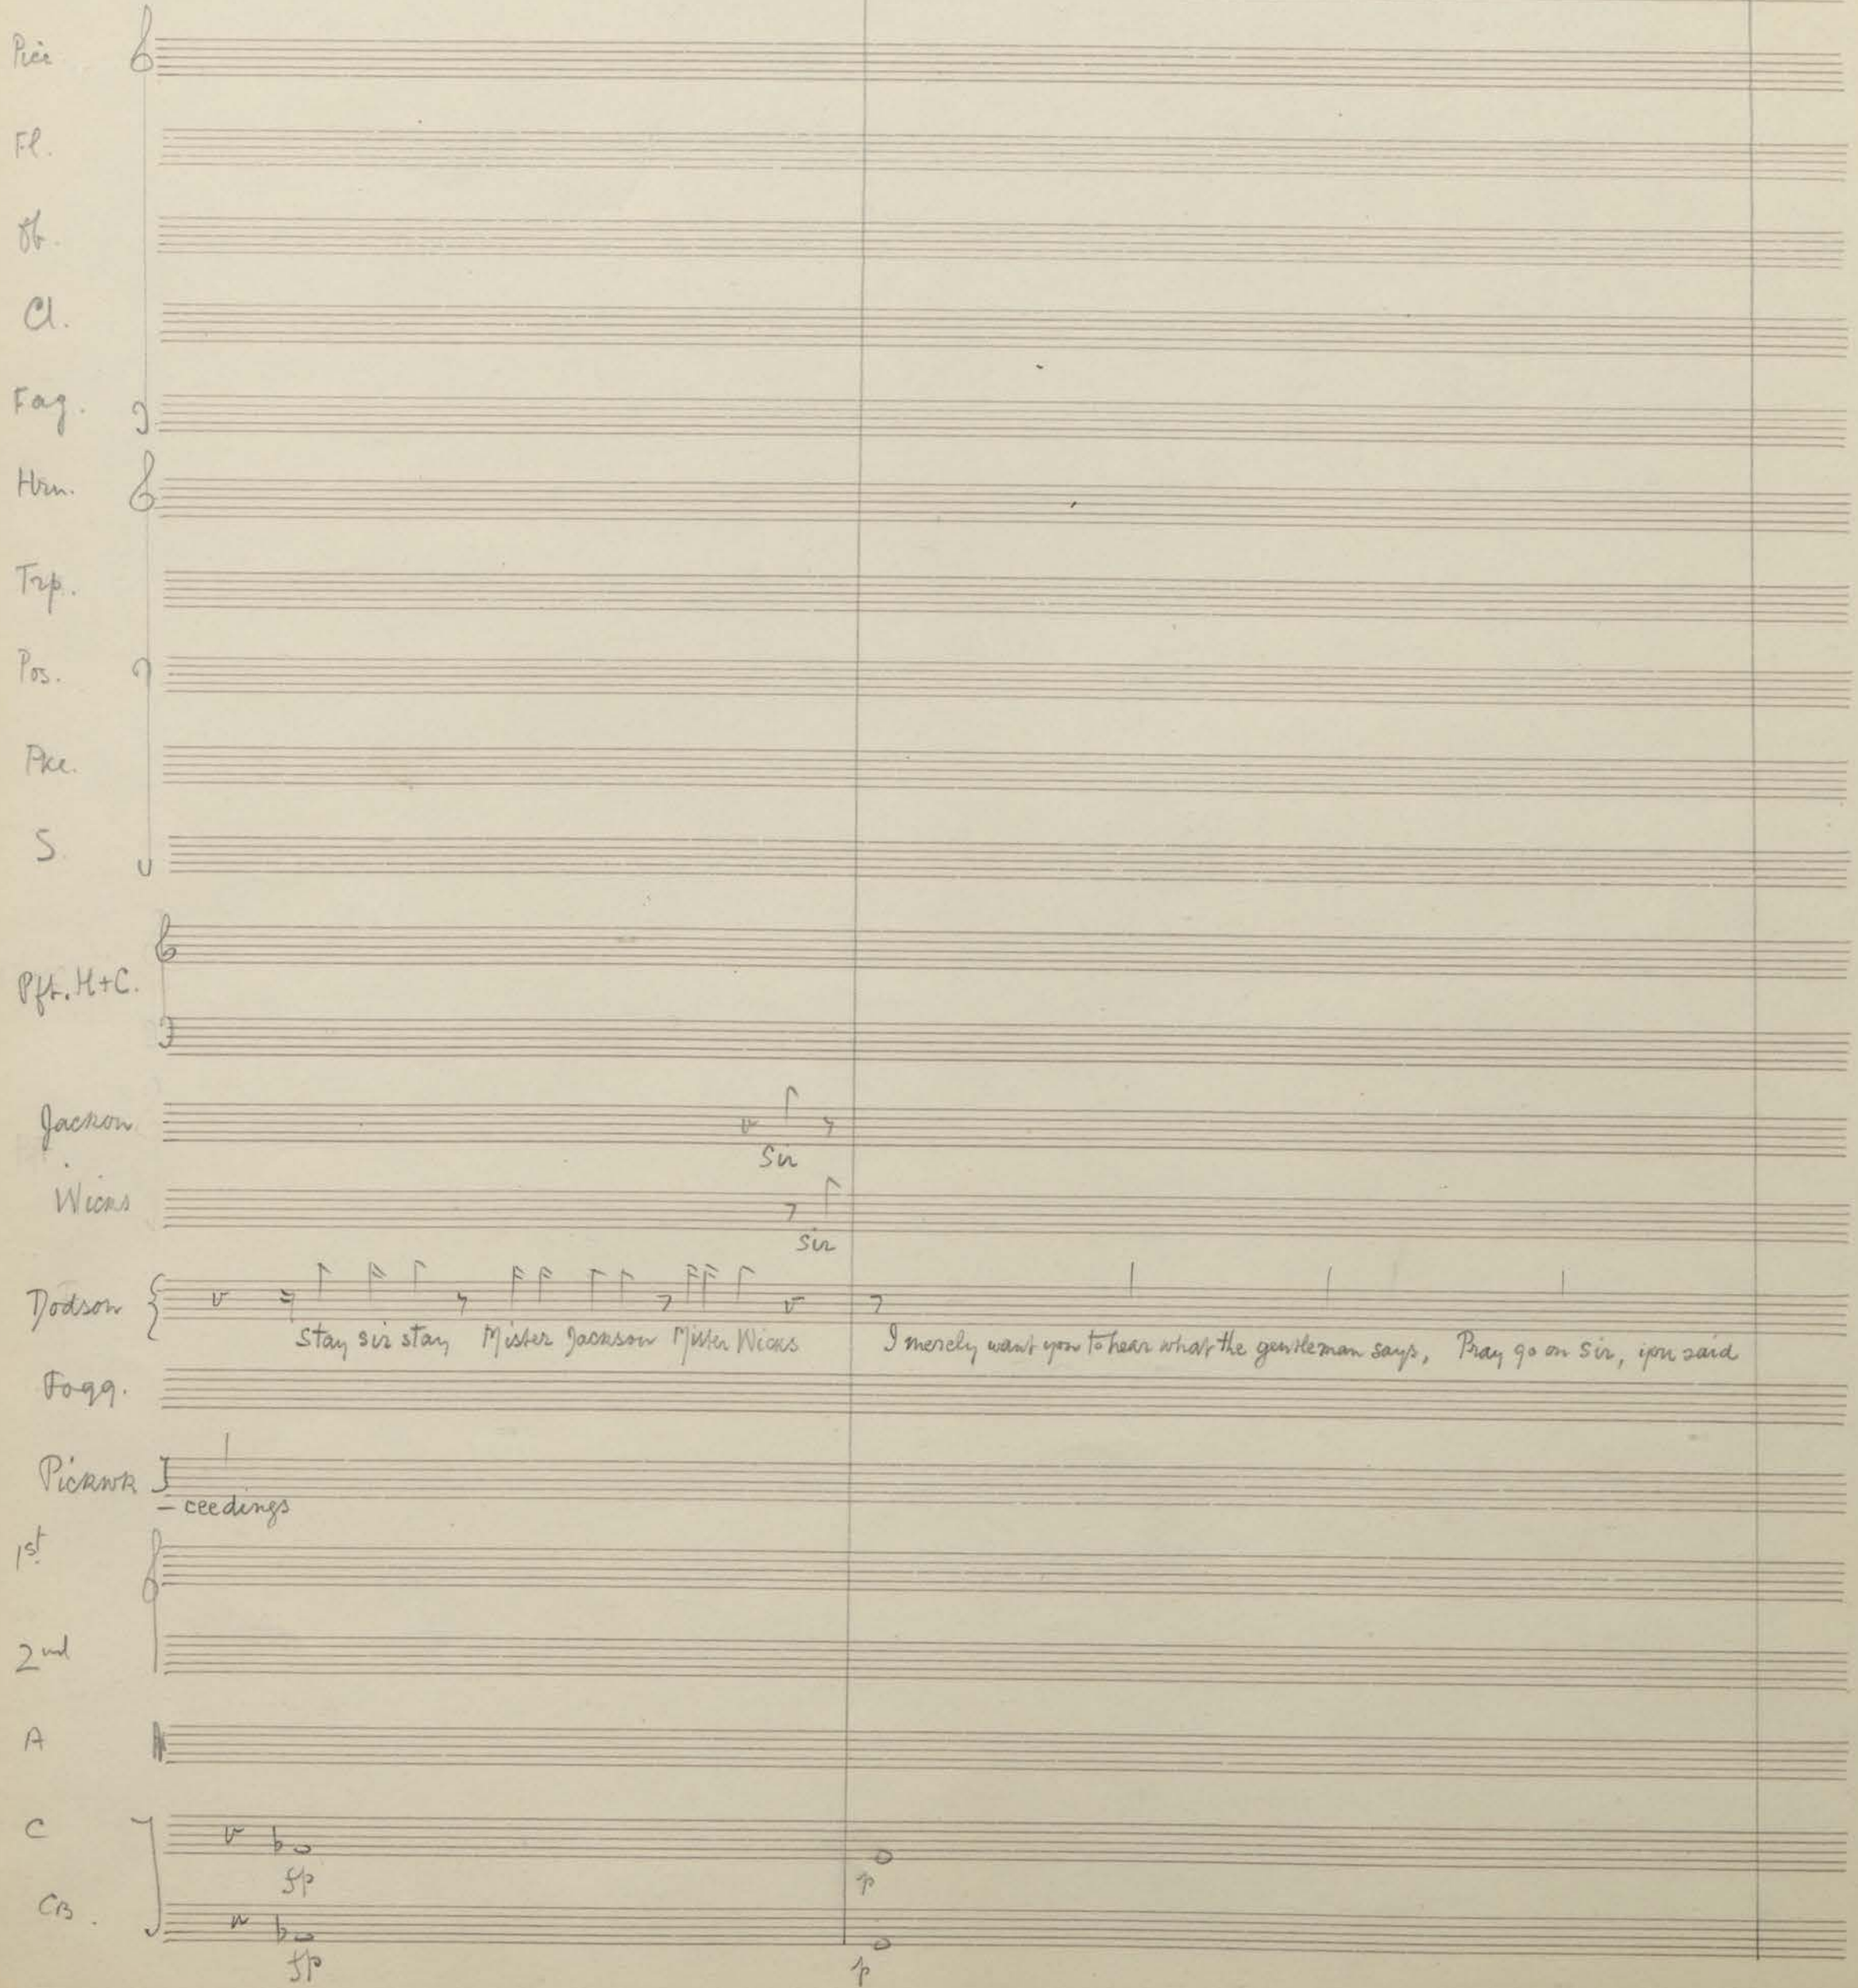 Picc
Fl.
Ob.
Cl.
Fag.
Hrn.
Trp.
Pos.
Pke.
S.
Pft. H+C.
Jackson
Sir
Wicks
Sir
Dodson
Stay sir stay Mister Jackson Mister Wicks I merely want you to hear what the gentleman says, Pray go on sir, you said
Fogg.
Pickwk
- ceedings
1st
2nd
A
C
fp p
CB.
fp p